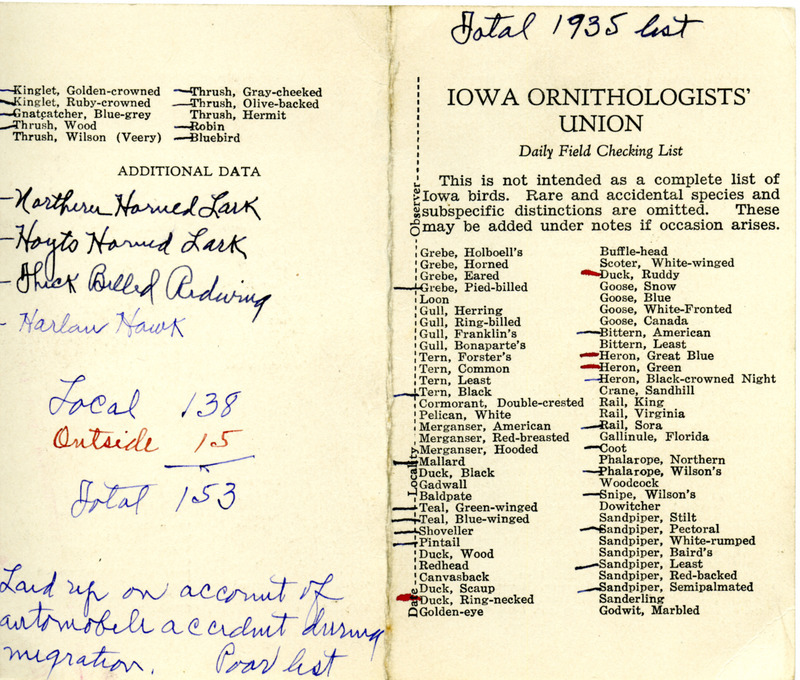 Kinglet, Golden-crowned
Kinglet, Ruby-crowned
Gnatcatcher, Blue-grey
Thrush, Wood
Thrush, Wilson (Veery)
Thrush, Gray-cheeked
Thrush, Olive-backed
Thrush, Hermit
Robin
Bluebird
ADDITIONAL DATA
- Northern Horned Lark
- Hoyts Horned Lark
- Thick Billed Redwing
- Harlan Hawk
Local 138
Outside 15
Total 153
Laid up on account of
automobile accident during
migration. Poor list
Total 1935 list
IOWA ORNITHOLOGISTS'
UNION
Daily Field Checking List
This is not intended as a complete list of
Iowa birds. Rare and accidental species and
subspecific distinctions are omitted. These
may be added under notes if occasion arises.
Date Locality Observer
Grebe, Holboell's
Grebe, Horned
Grebe, Eared
Grebe, Pied-billed
Loon
Gull, Herring
Gull, Ring-billed
Gull, Franklin's
Gull, Bonaparte's
Tern, Forster's
Tern, Common
Tern, Least
Tern, Black
Cormorant, Double-crested
Pelican, White
Merganser, American
Merganser, Red-breasted
Merganser, Hooded
Mallard
Duck, Black
Gadwall
Baldpate
Teal, Green-winged
Teal, Blue-winged
Shoveller
Pintail
Duck, Wood
Redhead
Canvasback
Duck, Scaup
Duck, Ring-necked
Golden-eye
Buffle-head
Scoter, White-winged
Duck, Ruddy
Goose, Snow
Goose, Blue
Goose, White-Fronted
Goose, Canada
Bittern, American
Bittern, Least
Heron, Great Blue
Heron, Green
Heron, Black-crowned Night
Crane, Sandhill
Rail, King
Rail, Virginia
Rail, Sora
Gallinule, Florida
Coot
Phalarope, Northern
Phalarope, Wilson's
Woodcock
Snipe, Wilson's
Dowitcher
Sandpiper, Stilt
Sandpiper, Pectoral
Sandpiper, White-rumped
Sandpiper, Baird's
Sandpiper, Least
Sandpiper, Red-backed
Sandpiper, Semipalmated
Sanderling
Godwit, Marbled